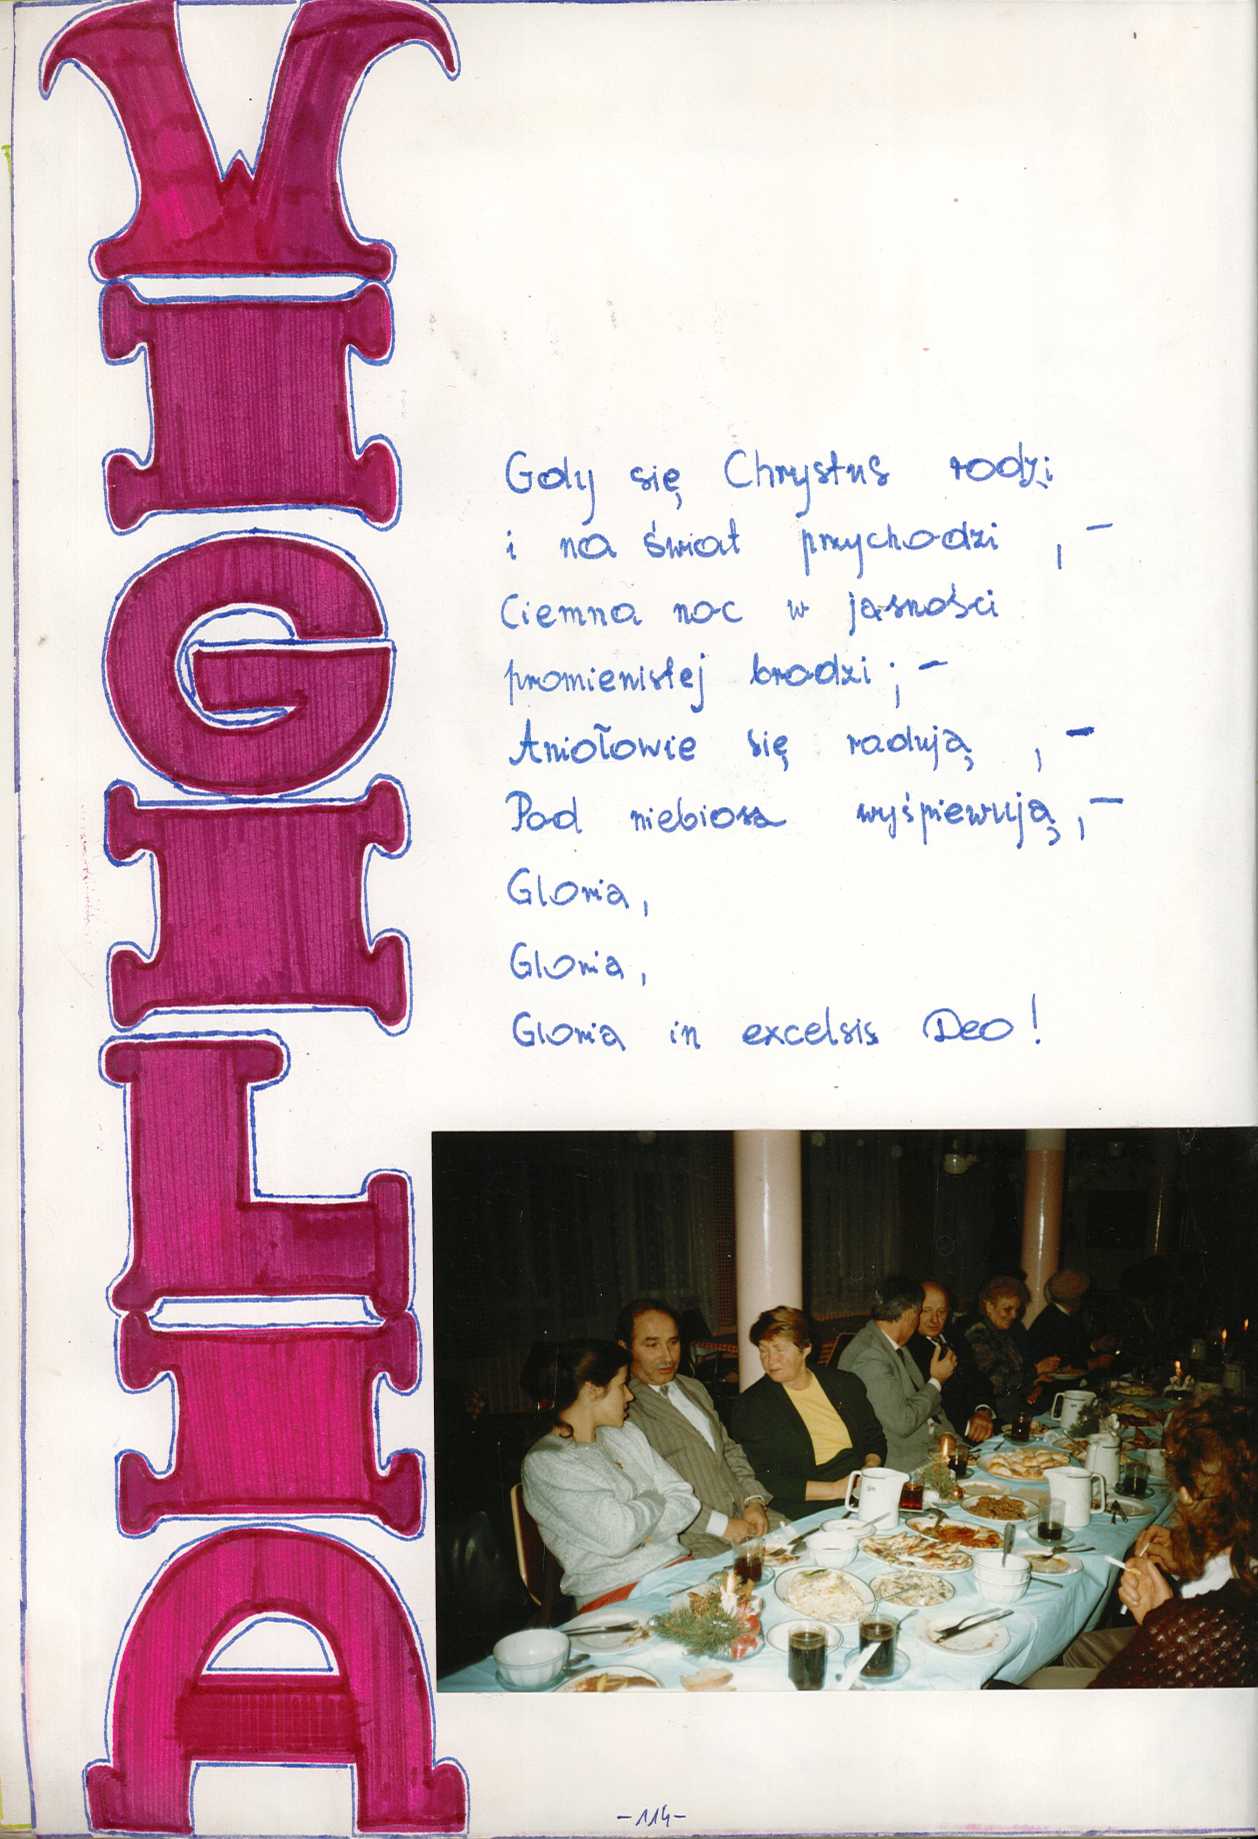 WIGILIA
Gdy się Chrystus rodzi
i na świat przychodzi , –
Ciemna noc w jasności
promienistej brodzi ; –
Aniołowie się radują , –
Pod niebiosa wyśpiewują , –
Gloria ,
Gloria ,
Gloria in excelsis Deo !
– 114 –